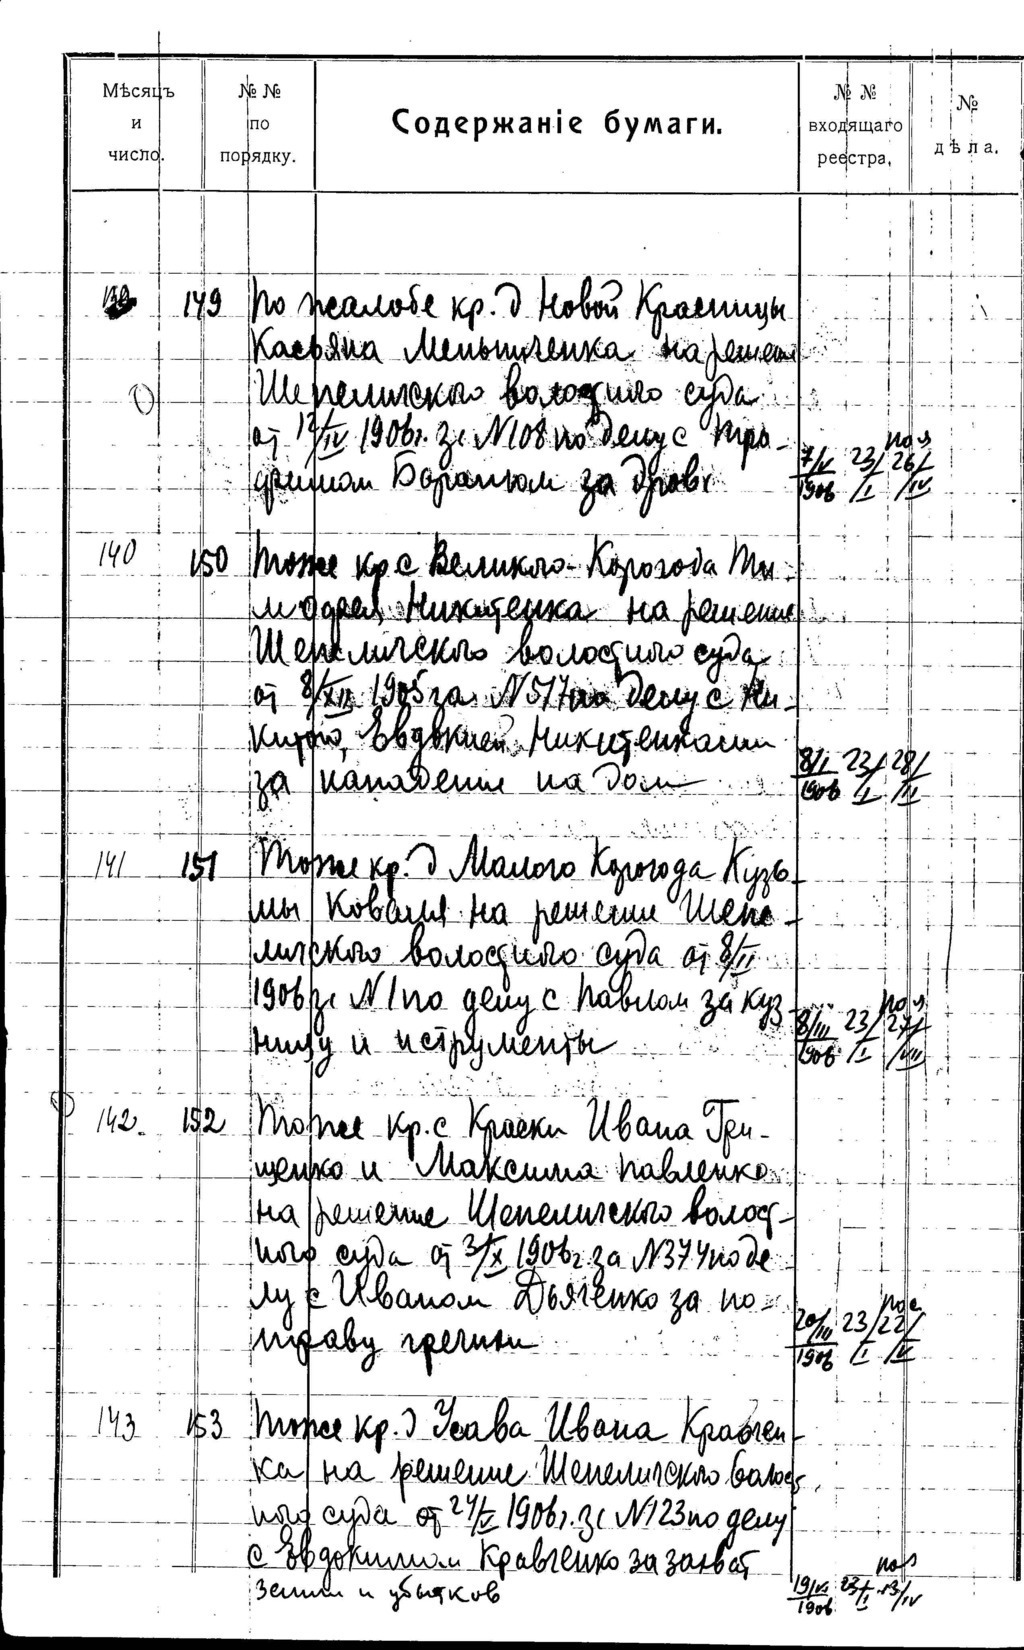 Мѣсяцъ и число.
№ № по порядку.
Содержаніе бумаги.
№ № входящаго реестра.
№ дѣла.
139 149 По жалобе кр. д Новой Красницы
Касьяна на решение
Шепеличского волостного суда
от 12/IV 1906г. за N108 по делу с Тро-
фимом Бараном за дрова
7/V 1906 23/I 26/IV
140 150 Тоже кр с Великого Корогода Ти-
мофея Никитенка на решение
Шепеличского волостного суда
от 8/XII 1905 за N577 по делу с Ни-
китою, Евдокией Никитенками
за нападение на дом
8/I 1906 23/I 28/II
141 151 Тоже кр. д Малого Корогода Кузь-
мы Коваля на решение Шепе-
личского волостного суда от 8/II
1906 за N1 по делу с Павлом за куз-
ницу и иструменты
8/III 1906 23/I 27/VII
142. 152 Тоже кр. с Ивана Гри-
щенко и Максима Павленко
на решение Шепеличского волост-
ного суда от 3/X 1906г за N374 по де-
лу с Иваном Дьяченко за по-
траву гречихи
20/III 1906 23/I 22/V
143 153 Тоже кр. д Усава Ивана Кравчен-
ка на решение Шепеличского волост-
ного суда от 24/V 1906г. за N123 по делу
с Евдокимом Кравченко за захват
земли и убытков
19/VI 1906 23/I 13/IV